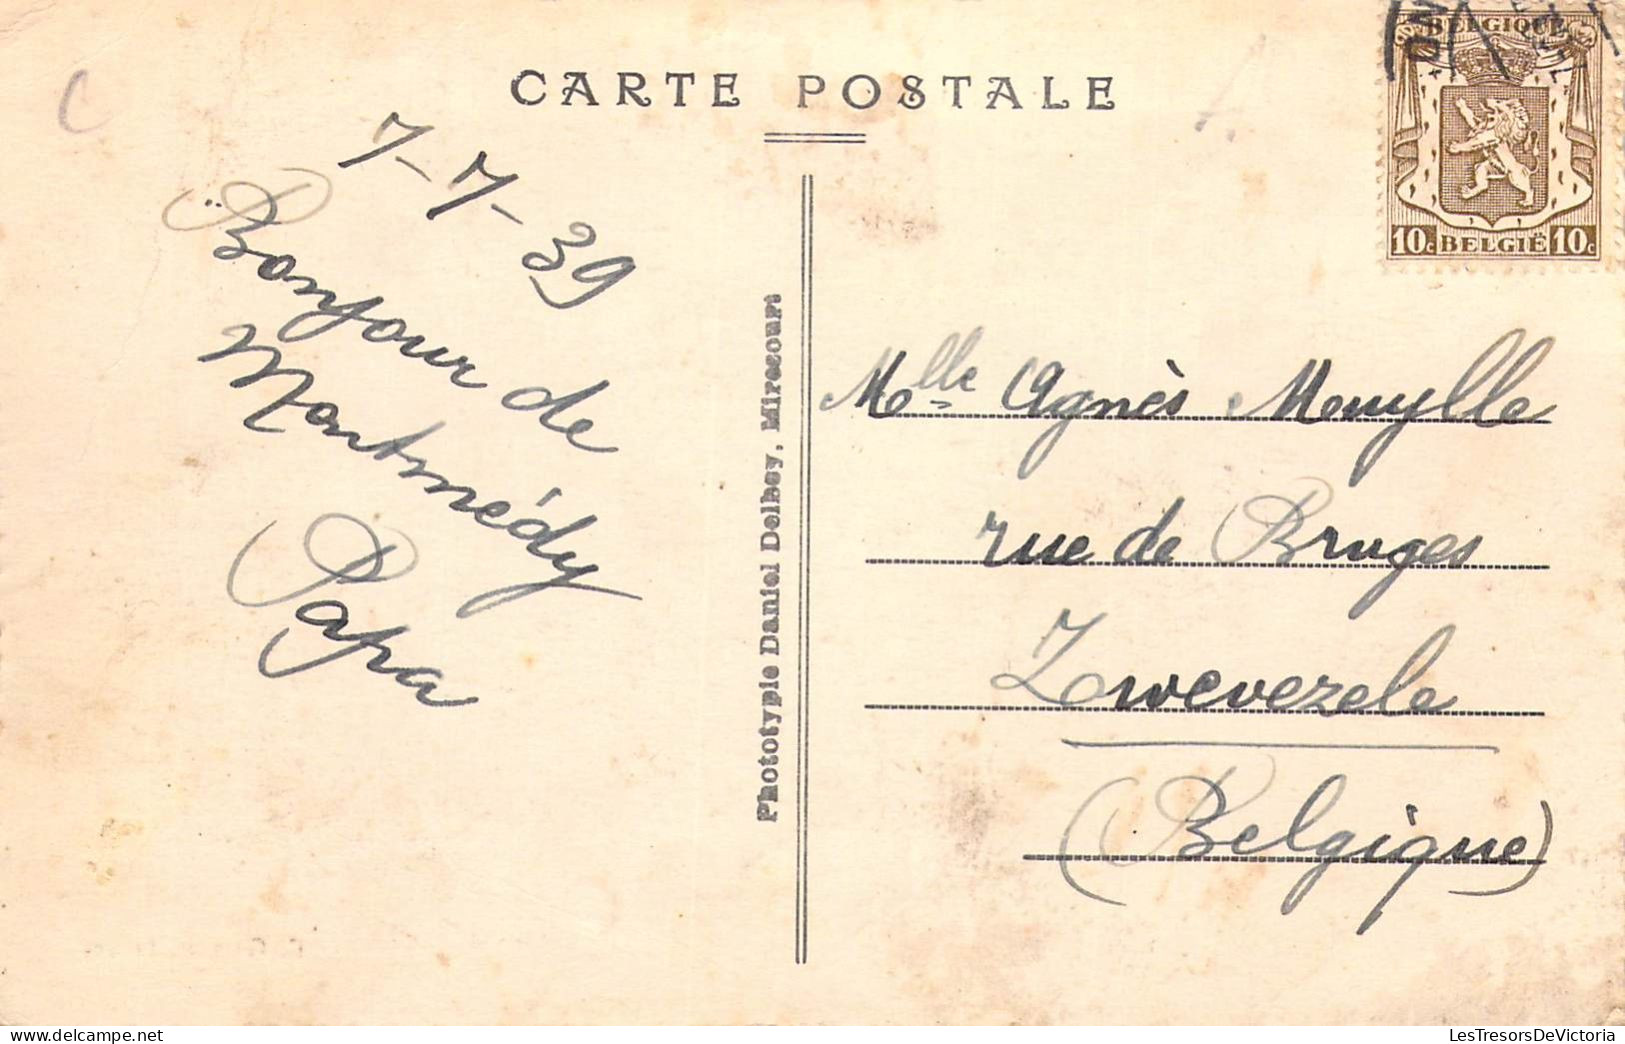 CARTE POSTALE
7-7-39
Bonjour de
Montmédy
Papa
Phototypie Daniel Delbey, Mirecourt
BELGIQUE
10c BELGIË 10c
Mlle Agnès Monylle
rue de Bruges
Zwevezele
(Belgique)
delcampe.net
LesTresorsDeVictoria